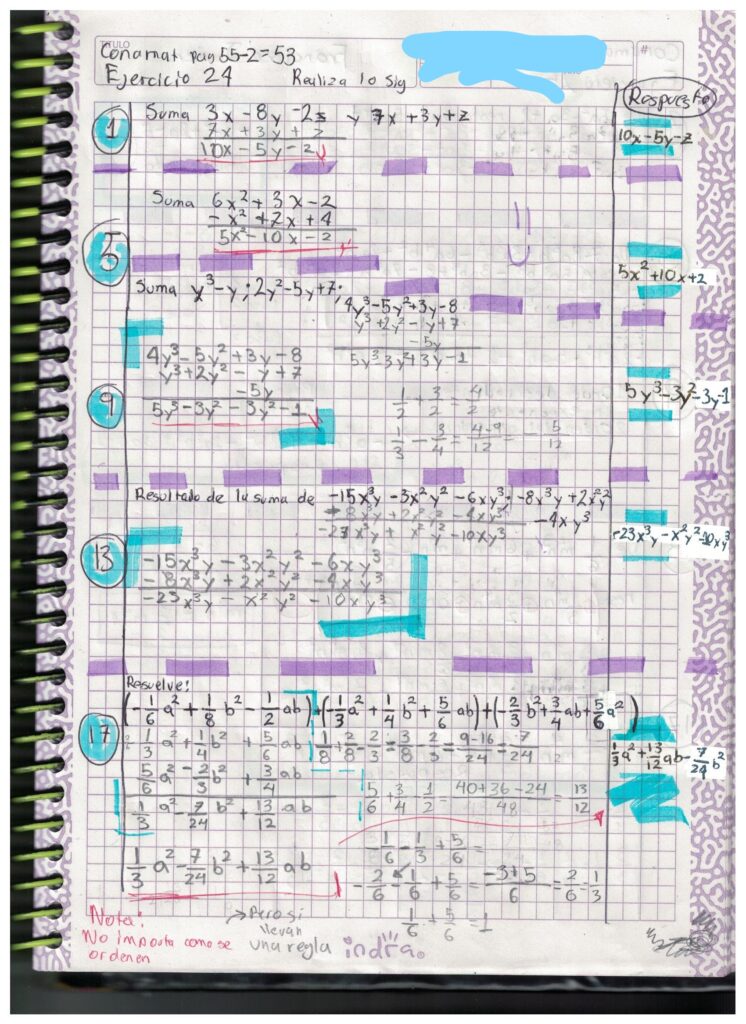 TITULO
Conamat pag 55-2=53
#
Ejercicio 24 Realiza lo sig
Respuesta
1
Suma 3x - 8y - 2z y 7x + 3y + z
7x + 3y + z
10x - 5y - z
10x - 5y - z
5
Suma 6x² + 3x - 2
- x² + 7x + 4
5x² - 10x - 2
5x² + 10x + 2
9
Suma y³ - y ; 2y² - 5y + 7 ;
4y³ - 5y² + 3y - 8
y³ + 2y² - y + 7
- 5y
5y³ 3y² + 3y - 1
4y³ - 5y² + 3y - 8
y³ + 2y² - y + 7
- 5y
5y³ - 3y² - 3y² - 1
5y³ - 3y² - 3y - 1
1/2 - 3/2 = 4/2
1/3 - 3/4 = 4-9/12 = - 5/12
13
Resultado de la suma de -15x³y - 3x²y² - 6xy³ ; -8x³y + 2x²y²
- 4xy³
- 8x³y + 2x²y² - 4xy³
-23x³y + x²y² - 10xy³
-15x³y - 3x²y² - 6xy³
- 8x³y + 2x²y² - 4xy³
-23x³y - x²y² - 10xy³
-23x³y - x²y² - 10xy³
17
Resuelve:
(-1/6 a² + 1/8 b² - 1/2 ab) + (-1/3 a² + 1/4 b² + 5/6 ab) + (-2/3 b² + 3/4 ab + 5/6 a²)
1/3 a² + 1/4 b² + 5/6 ab
1/8 + 2/8 - 2/3 = 3/8 - 2/3 = 9-16/24 = 7/24
5/6 a² - 2/3 b² + 3/4 ab
5/6 + 3/4 1/2 = 40+36-24/48 = 13/12
1/3 a² - 7/24 b² + 13/12 ab
1/3 a² + 13/12 ab - 7/24 b²
-1/6 - 1/3 + 5/6 =
1/3 a² - 7/24 b² + 13/12 ab
- 2/6 - 1/6 + 5/6 = -3+5/6 = 2/6 = 1/3
1/6 + 5/6 = 1
Nota:
No importa como se
ordenen
→ Pero si
llevan
una regla
indra.